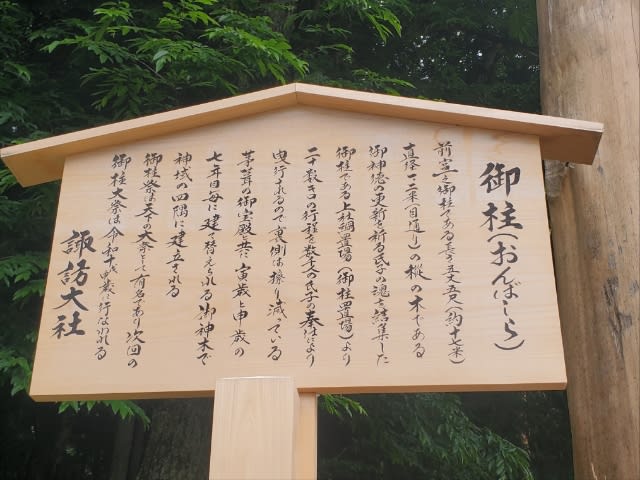 御柱(おんばしら)
前宮二之御柱である長さ五丈五尺(約十七米)
直径一・二米(目通り)の樅の木である
御神徳の更新を祈る氏子の魂を結集した
御柱である上社綱置場(御柱置場)より
二十数キロの行程を数千人の氏子の奉仕により
曳行されるので裏側は擦り減っている
茅葺御宝殿共に寅歳と申歳の
七年目毎に建て替えられる御神木で
神域の四隅に建立される
御柱祭は天下の大祭として有名であり次回の
御柱大祭は令和十年申歳に行なわれる
諏訪大社